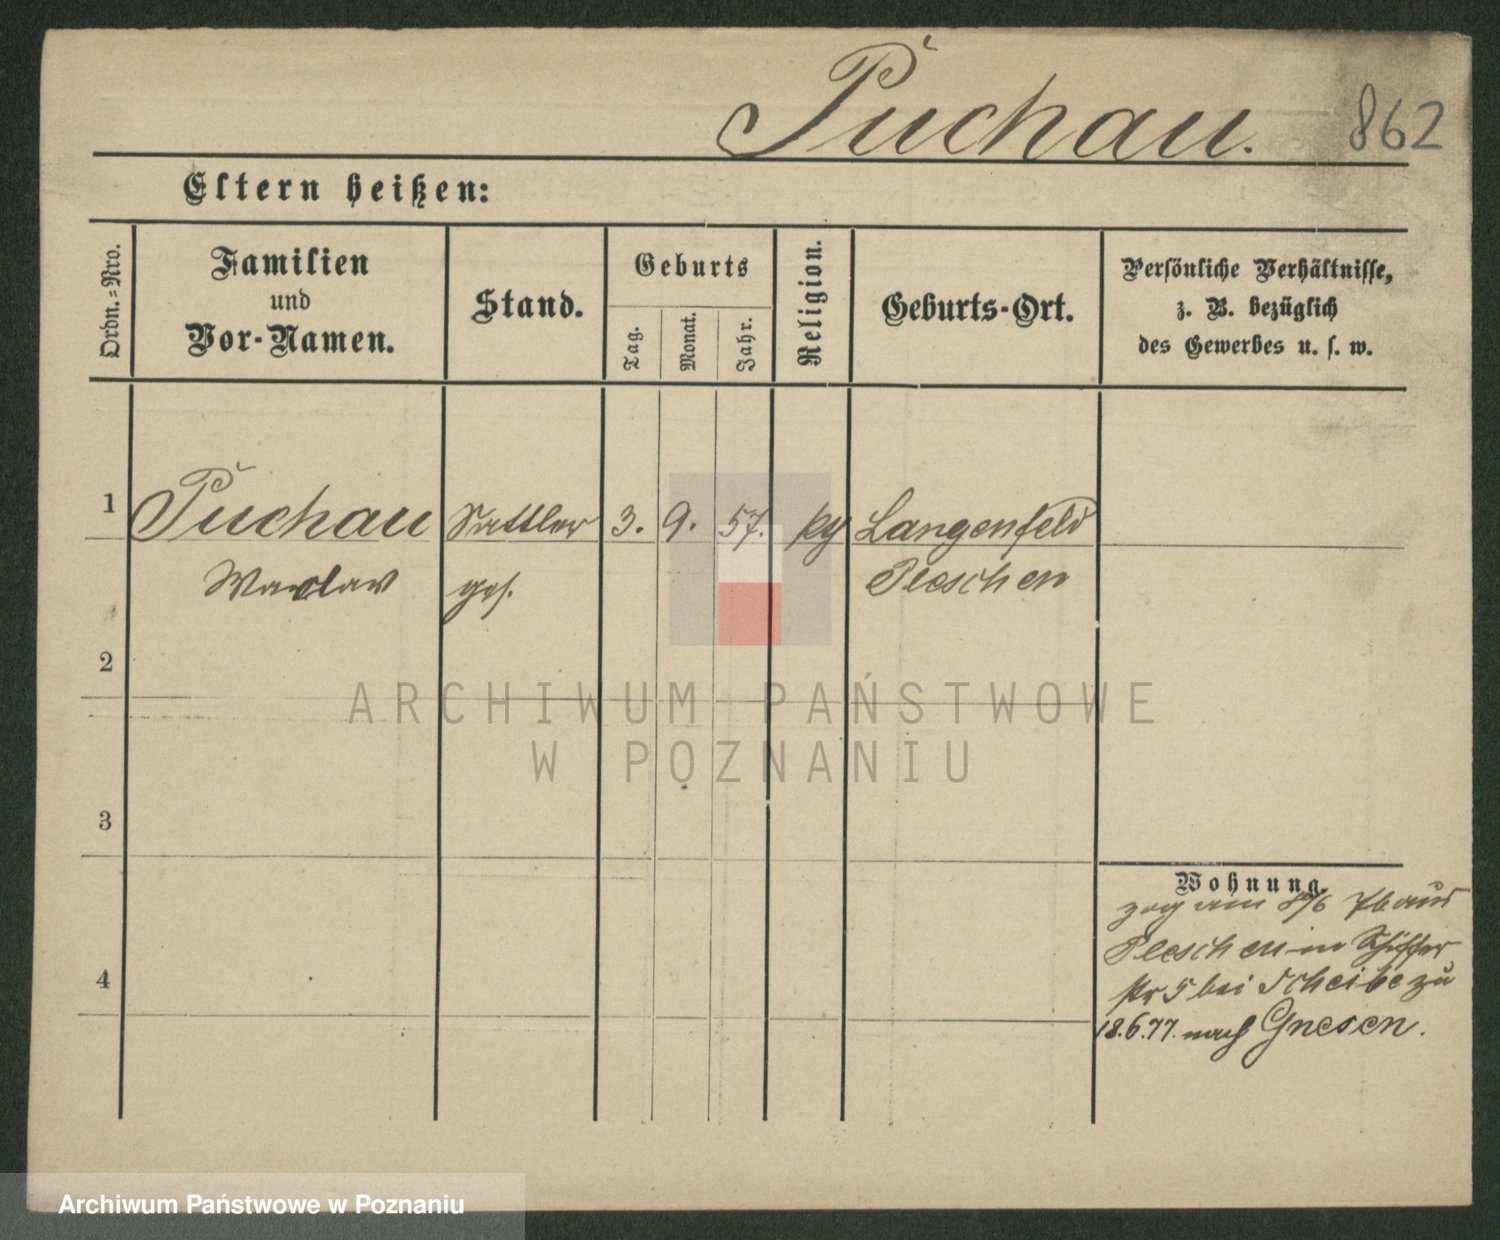 Puchau.
862
Eltern heißen:
Ordn.=Nro.
Familien
und
Vor-Namen.
Stand.
Geburts
Tag.
Monat.
Jahr.
Religion.
Geburts-Ort.
Persönliche Verhältnisse,
z. B. bezüglich
des Gewerbes u. s. w.
1
Puchau Sattler 3. 9. 57. Langenfeld
Waclaw ges. Pleschen
2
3
4
Wohnung.
zog am 8/6 76 aus
Pleschen in Schiffer
str 5 bei Scheibe zu
18.6.77. nach Gnesen.
ARCHIWUM PAŃSTWOWE
W POZNANIU
Archiwum Państwowe w Poznaniu